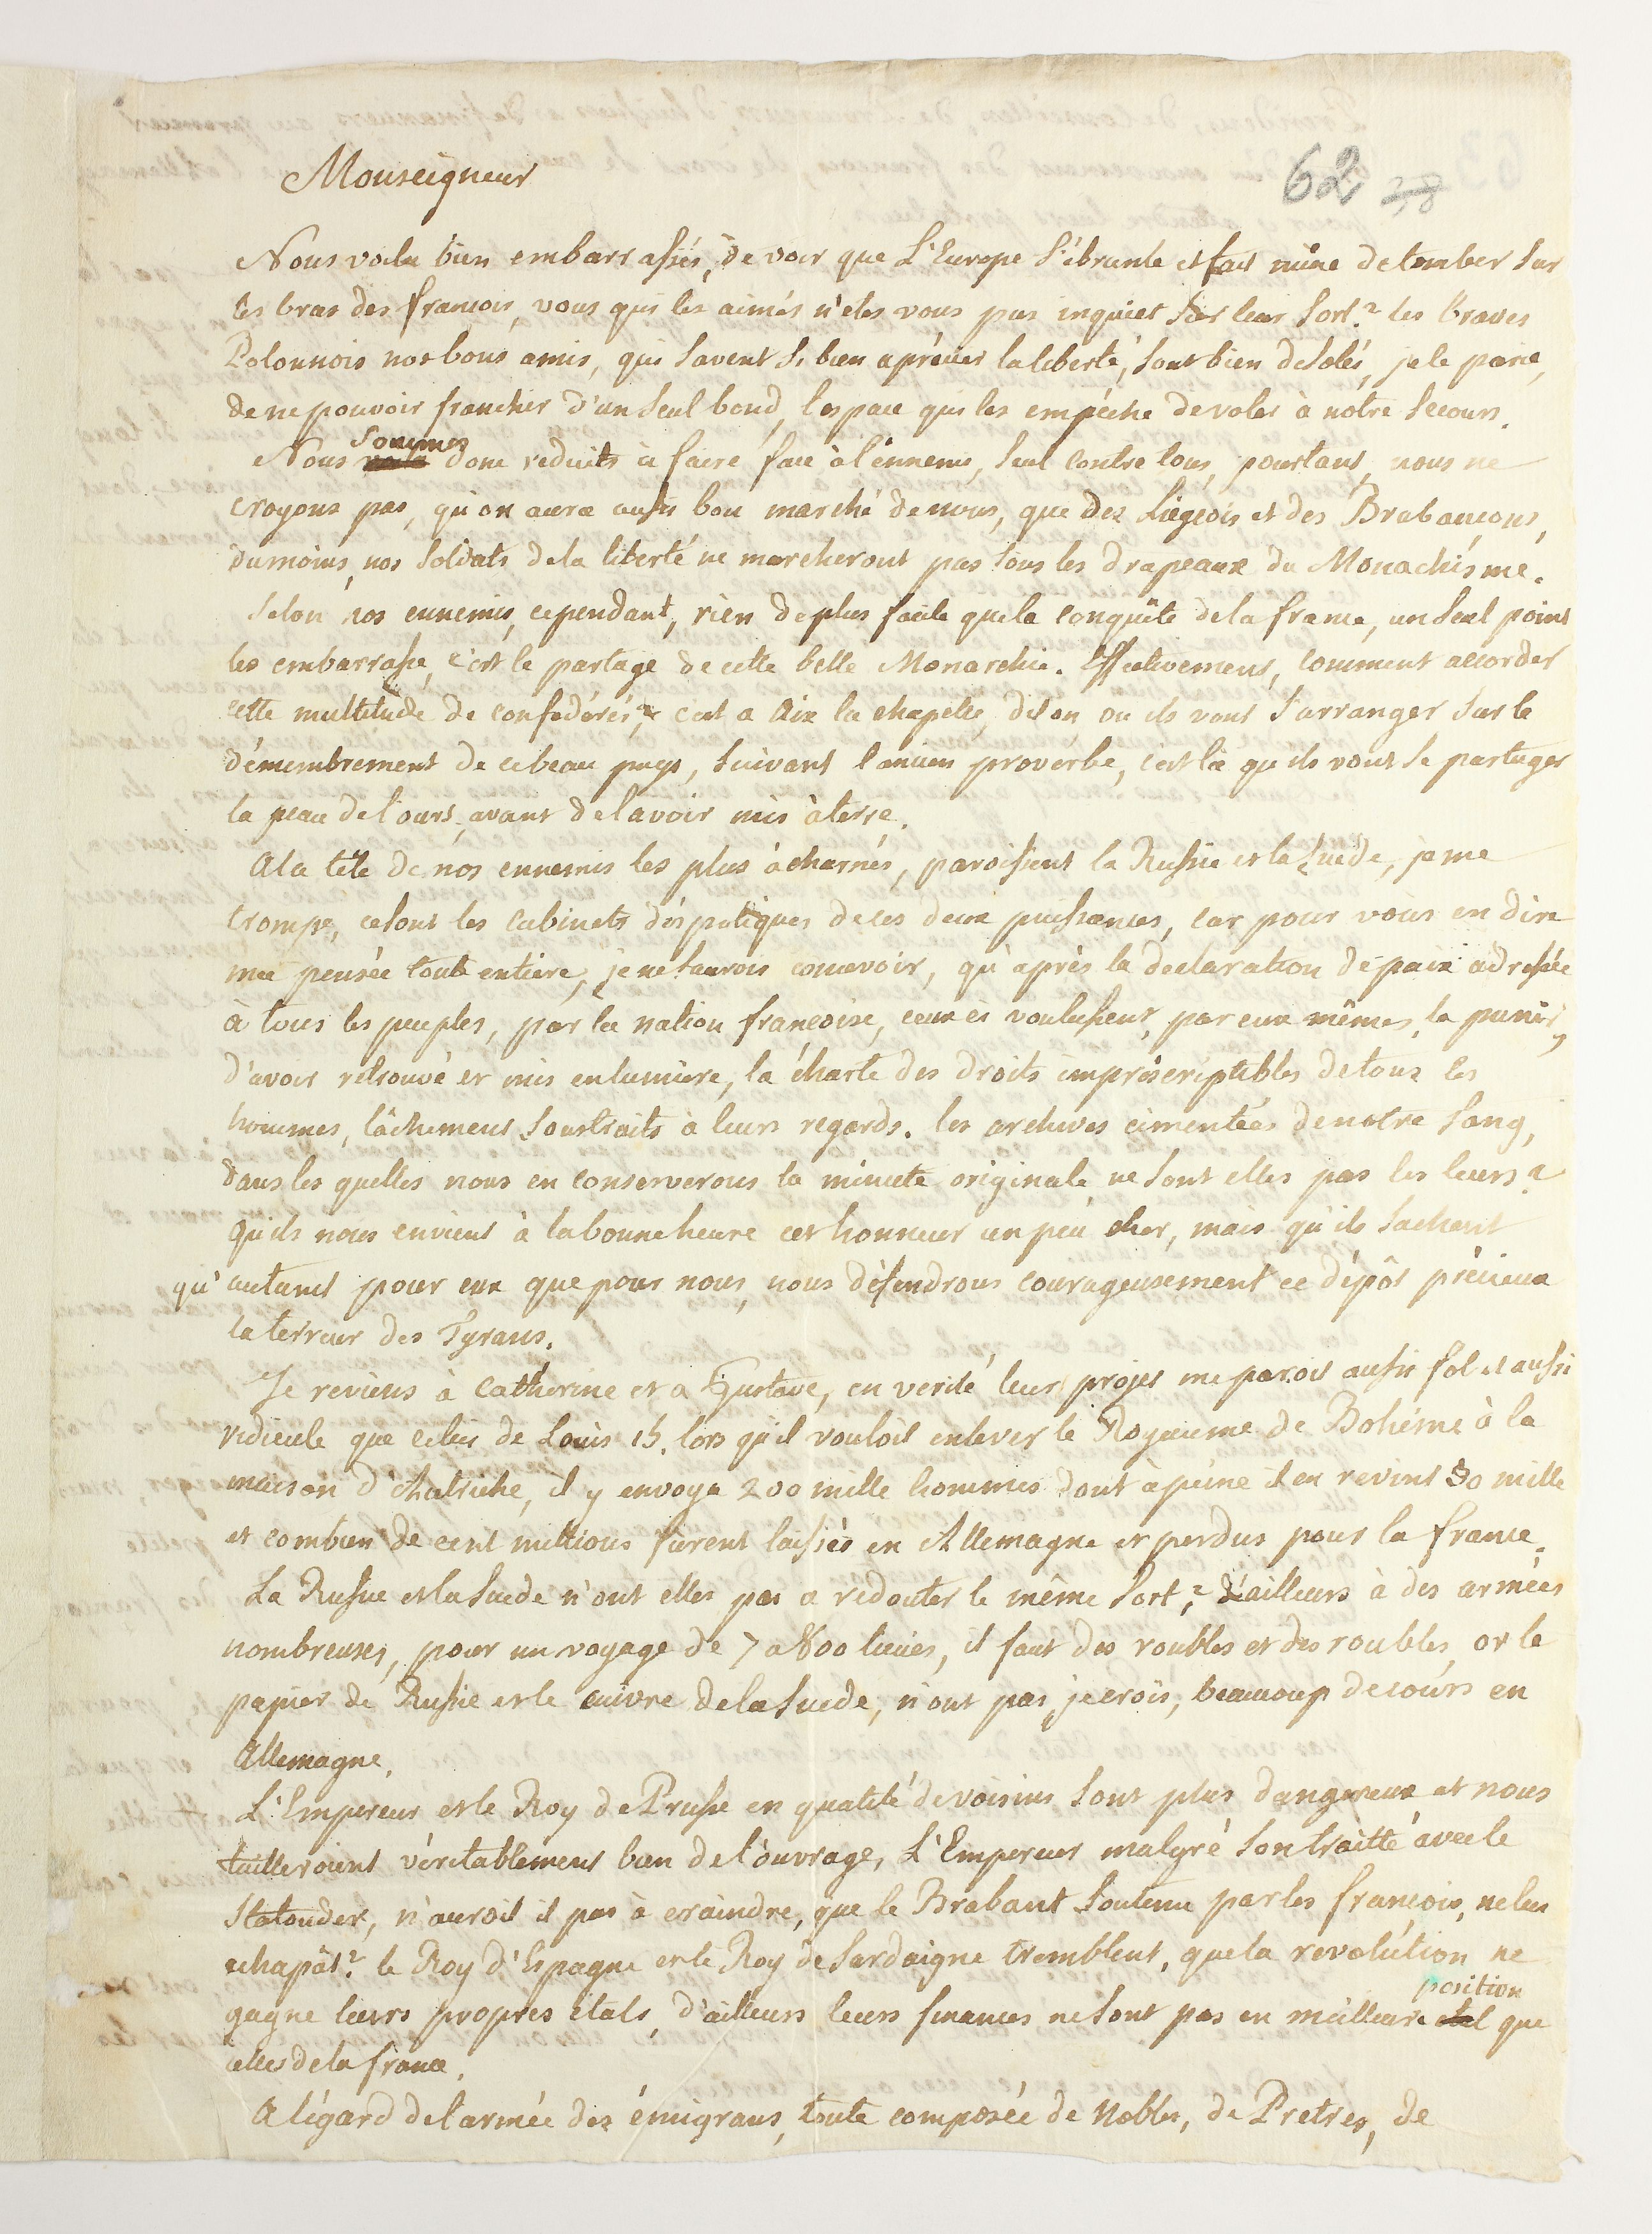 Monseigneur
62 28
Nous voila bien embarrassés, de voir que L'Europe s'ébranle et fait mine de tomber sur
les bras des francois, vous qui les aimés n'etes vous pas inquiet sur leur sort? les braves
Polonnois nos bons amis, qui savent si bien aprécier la liberté, sont bien desolés, je le parie,
de ne pouvoir franchir d'un seul bond, l'espace qui les empéche de voler à notre secours.
sommes
Nous voila donc reduits à faire face à l'ennemi, seul contre tous, pourtant, nous ne
croyons pas, qu'on aura aussi bon marché de nous, que des Liégeois et des Brabançons,
du moins, nos soldats de la liberté ne marcheront pas sous les drapeaux du Monachisme.
Selon nos ennemis, cependant, rien de plus facile que la conquête de la france, un seul point
les embarrasse, c'est le partage de cette belle Monarchie. Effectivement, comment accorder
cette multitude de confédérés? c'est a Aix la chapelle, dit on, ou ils vont s'arranger sur le
démembrement de ce beau pays, suivant l'ancien proverbe, c'est là qu'ils vont se partager
la peau de l'ours, avant de l'avoir mis à terre.
A la tête de nos ennemis les plus acharnés, paroissent la Russie et la Suéde, je me
trompe, ce sont les cabinets déspotiques de ces deux puissances, car pour vous en dire
ma pensée toute entiere, je ne saurois concevoir, qu'après la declaration de paix adressée
à tous les peuples, par la nation françoise, ceux ci voulussent, par eux mêmes, la punir,
d'avoir retrouvé et mis en lumiere, la charte des droits imprescriptibles de tous les
hommes, lâchement soustraits à leurs regards. les archives cimentées de notre sang,
dans les quelles nous en conserverons la minute originale ne sont elles pas les leurs?
qu'ils nous envient à la bonne heure cet honneur un peu cher, mais qu'ils sachent
qu'autant pour eux que pour nous, nous défendrons courageusement ce dépôt précieux
la terreur des Tyrans.
Je reviens à Catherine et a Gustave, en verité leur projet me paroit aussi fol et aussi
ridicule que celui de Louis 15. lors qu'il vouloit enlever le Royaume de Bohéme à la
maison d'Autriche, il y envoya 200 mille hommes dont à peine il en revint 30 mille
et combien de cent millions furent laissés en Allemagne et perdus pour la france.
La Russie et la Suede n'ont elles pas a redouter le même sort? d'ailleurs à des armées
nombreuses, pour un voyage de 7 a 800 lieues, il faut des roubles et des roubles, or le
papier de Russie et le cuivre de la Suede, n'ont pas, je crois, beaucoup de cours en
Allemagne.
L'Empereur et le Roy de Prusse en qualité de voisins sont plus dangereux et nous
tailleroient véritablement bien de l'ouvrage, L'Empereur malgré son traitté avec le
Statouder, n'auroit il pas à craindre, que le Brabant soutenu par les françois, ne lui
echapât? le Roy d'Espagne et le Roy de Sardaigne tremblent, que la revolution ne
position
gagne leurs propres états, d'ailleurs leurs finances ne sont pas en meilleure etat que
celles de la france.
A l'égard de l'armée des émigrans, toute composée de Nobles, de Pretres, de